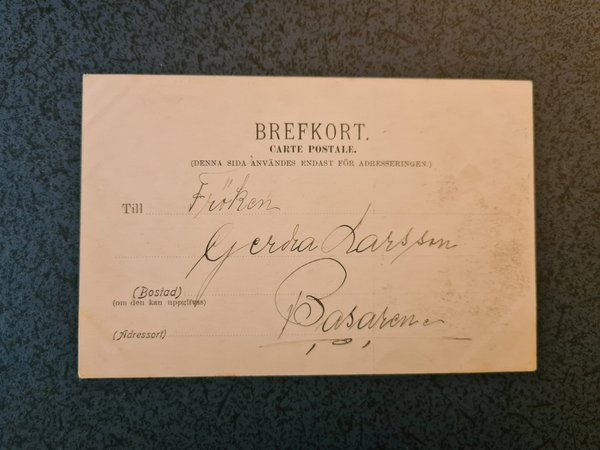 BREFKORT.
CARTE POSTALE.
(DENNA SIDA ANVÄNDES ENDAST FÖR ADRESSERINGEN.)
Till Fröken
Gerda Larsson
(Bostad)
(om den kan uppgifvas)
Basaren
(Adressort)